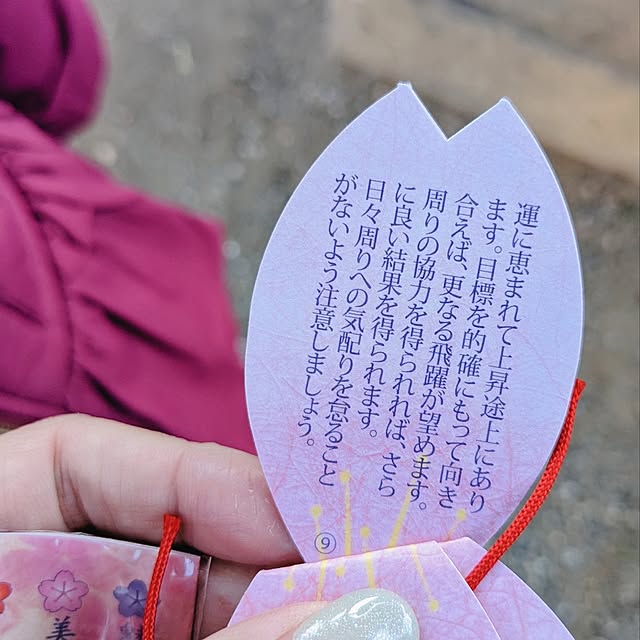 運に恵まれて上昇途上にあり
ます。目標を的確にもって向き
合えば、更なる飛躍が望めます。
周りの協力を得られれば、さら
に良い結果を得られます。
日々周りへの気配りを怠ること
がないよう注意しましょう。
⑨
美